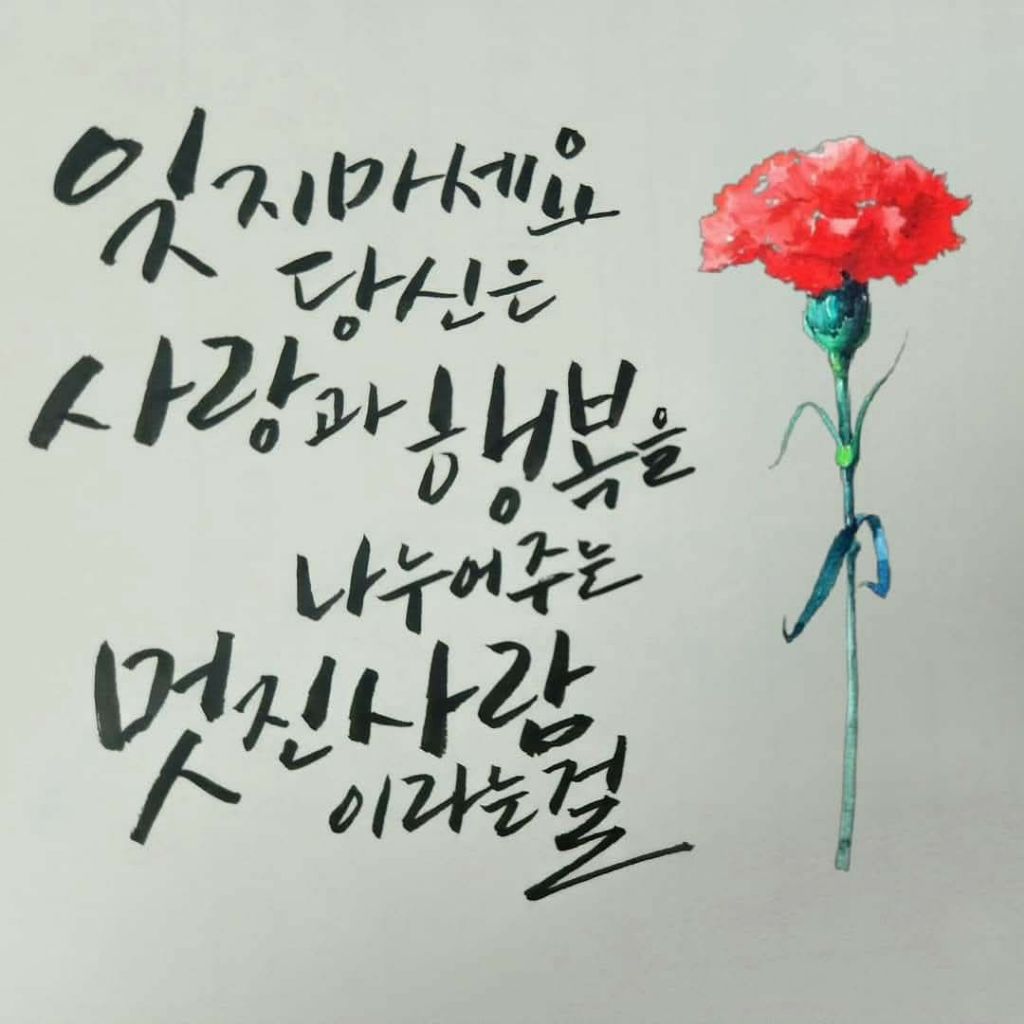 잊지마세요
당신은
사랑과 행복을
나누어주는
멋진사람
이라는걸